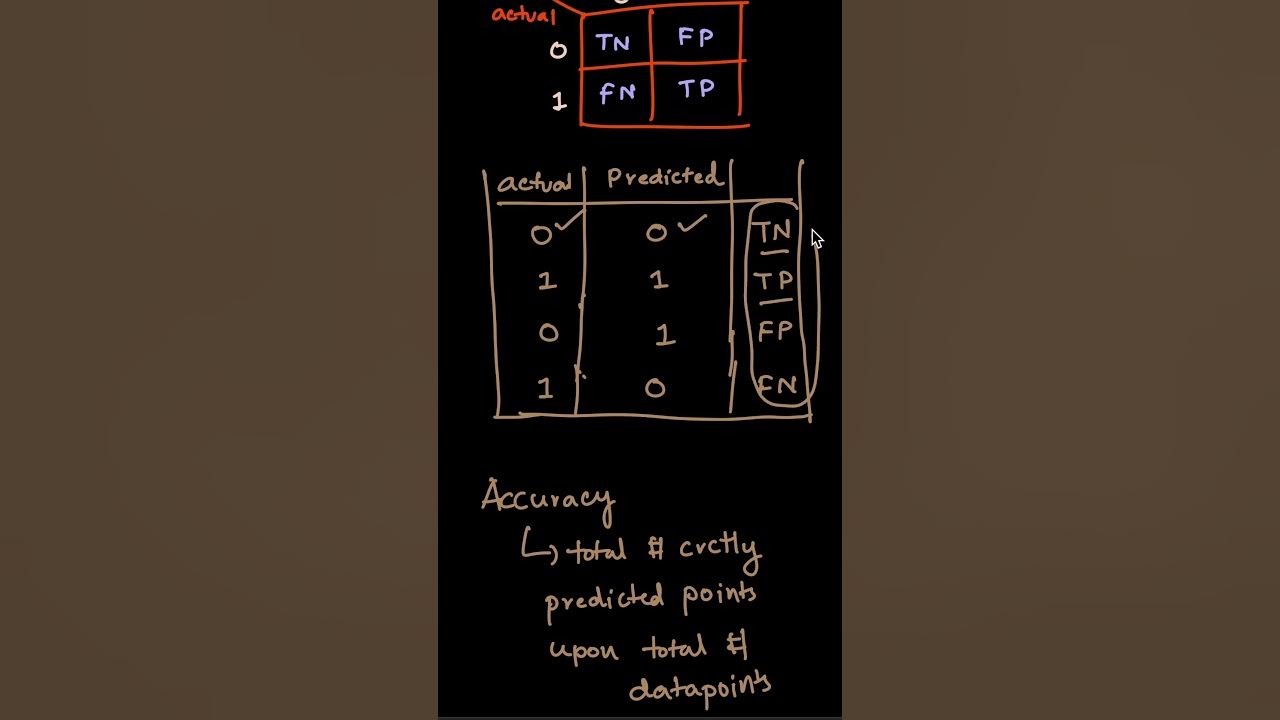 actual
0 TN FP
1 FN TP
actual Predicted
0 0 TN
1 1 TP
0 1 FP
1 0 FN
Accuracy
↳ total # crctly
predicted points
upon total #
datapoints